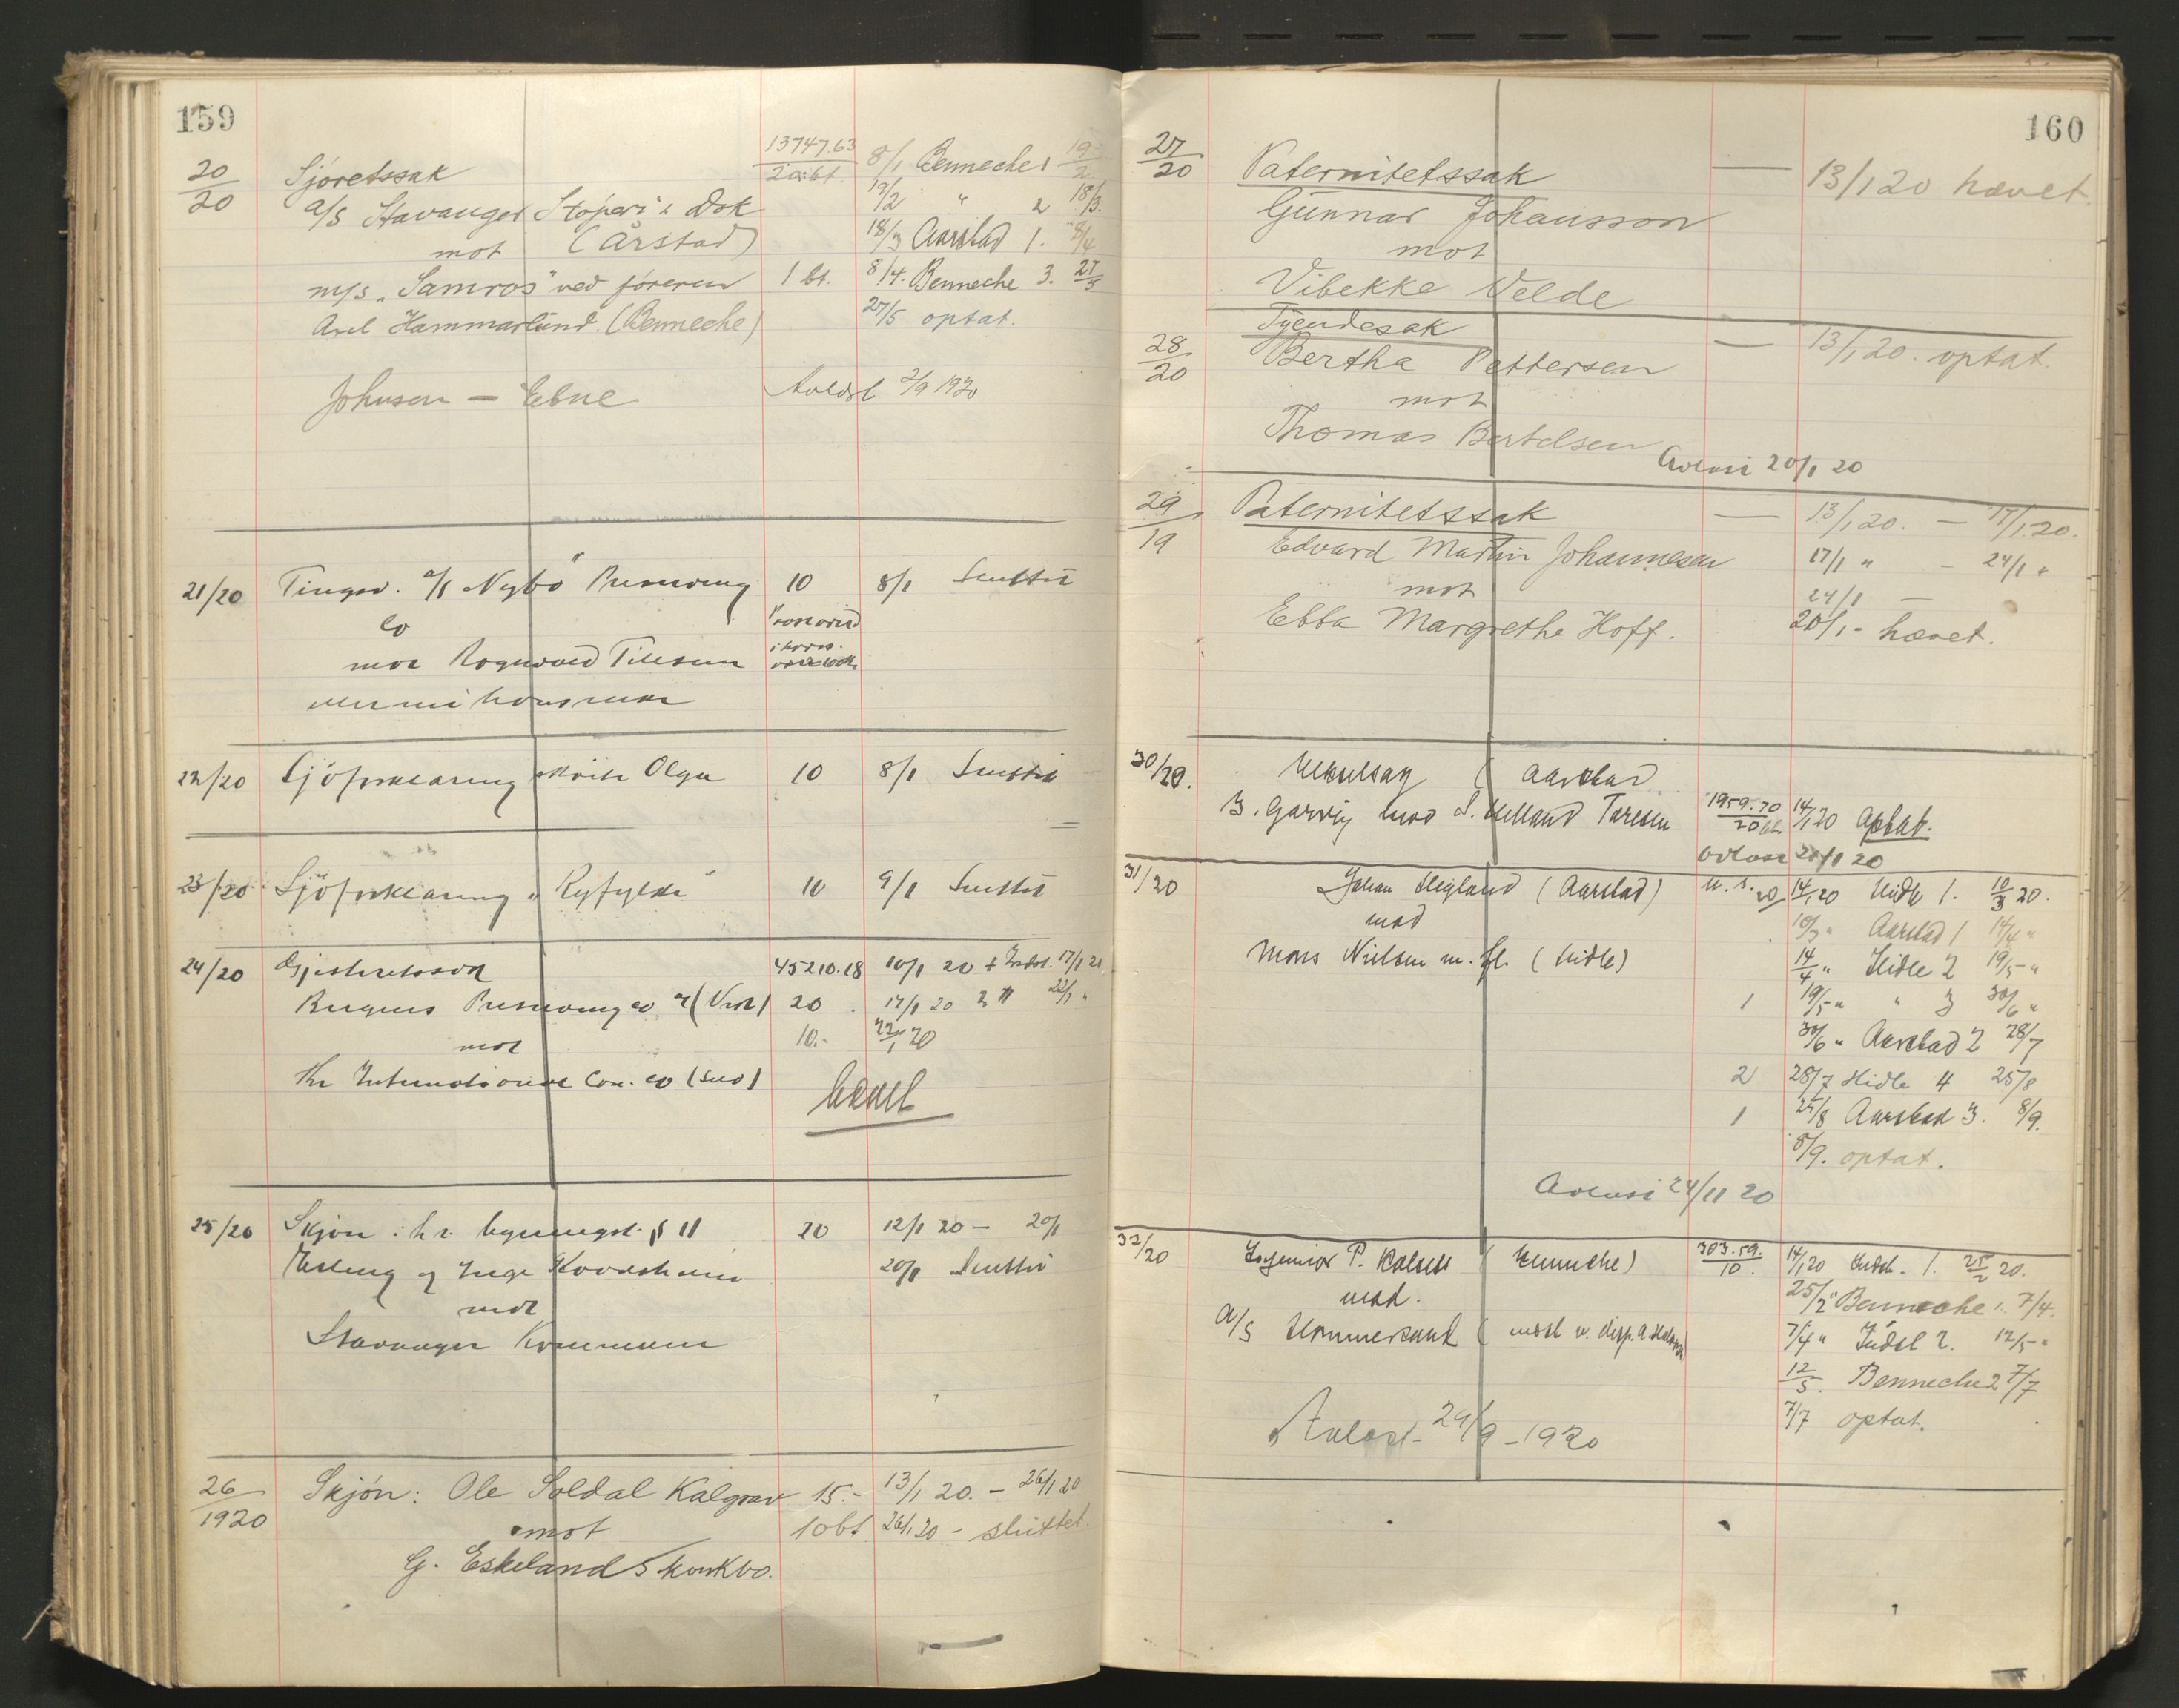 159
20/20 Sjøretssak 13747.63 / 20 bl. 8/1 Benneche 1 19/2
a/s Stavanger Støperi & Dok 19/2 " 2 18/3.
mot (Årstad) 18/3 Aarstad 1. 8/4
m/s „Samros" ved føreren 1 bl. 8/4. Benneche 3. 27/5
Axel Hammarlund. (Benneche) 27/5 optat.
Johnsen — Ebne Avldst 2/9 1920
21/20 Tingsv. a/s „Nybö" Preserving 10 8/1 Sluttet
Co
mot Rognvald Tillesen
22/20 Sjöforklaring skøite Olga 10 8/1 Sluttet
23/20 Sjöforklaring „Ryfylke" 10 9/1 Sluttet
24/20 Gjesteretssak 45210.18 10/1 20 1 Indst. 17/1 20
Bergens Preserving co 20 17/1 20 2 " 22/1 "
mot 10.- 22/1 20
The International Can. co
hævet
25/20 Skjøn i h.t. bygningsl. § 11 20 12/1 20 — 20/1
Erling og Inge 20/1 Sluttet
mot
Stavanger Kommune
26/1920 Skjön: Ole Soldal Kalgrav 15.- 13/1 20. — 26/1 20
mot 10 bl 26/1 20 - sluttet.
G. Eskelands konkbo.
160
27/20 Paternitetssak — 13/1 20 hævet.
Gunnar Johansson
mot
Vibekke Velde
28/20 Tyendesak — 13/1 20. optat.
Bertha Pettersen
mot
Thomas Bertelsen
Avlost 20/1 20
29/19 Paternitetssak — 13/1 20. — 17/1 20.
Edvard Martin Johannesen 17/1 " — 24/1 "
mot 24/1 —
Ebba Margrethe Hoff. 20/1 - hævet.
30/20. Aarstad
1959.70 / 20 bl. 14/1 20 Optat.
Avlost 20/1 20
31/20 Johan Høgland (Aarstad) 20 14/1 20 Hidle 1. 10/3 20.
mod 10/3 " Aarstad 1 14/4 "
Mons Nielsen m. fl. (Hidle) 14/4 " Hidle 2 19/5 "
1 19/5 " " 3 30/6 "
30/6 " Aarstad 2 28/7
2 28/7 Hidle 4 25/8
1 25/8 Aarstad 3. 8/9.
8/9. optat.
Avlost 24/11 20
32/20 Ingeniør P. (Benneche) 303.59. / 10. 14/1 20 Indst. 1. 25/2 20.
mod. 25/2 " Benneche 1. 7/4.
A/S 7/4 " Indst 2. 12/5 "
12/5. Benneche 2 7/7
7/7 optat.
Avlost - 24/9 - 1920